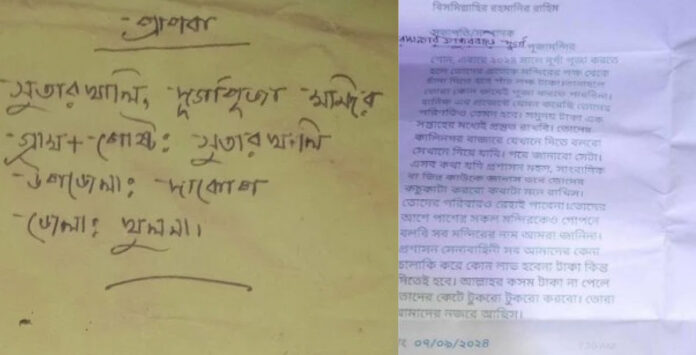 প্রাপক
সুতারখালি, দুর্গাপূজা মন্দির
গ্রাম + পোষ্ট: সুতারখালি
উপজেলা: দাকোপ
জেলা: খুলনা।
বিসমিল্লাহির রহমানির রাহিম
পূজামন্দির
শোন, এবারে ২০২৪ সালে দুর্গা পূজা করতে
হলে তোদের প্রত্যেক মন্দিরের পক্ষ থেকে
চাঁদা দিতে হবে পাঁচ লক্ষ টাকা।
তোরা কোন ভাবেই পূজা করতে পারবিনা।
সপ্তাহের মধ্যেই প্রস্তুত রাখবি। তোদের
কালিনগর বাজারে যেখানে দিতে বলবো
সেখানে দিয়ে যাবি। পরে জানাবো সেটা।
এসব কথা যদি প্রশাসন মহল, সাংবাদিক
বা ভিন্ন কাউকে জানাস তবে তোদের
কচুকাটা করবো কথাটা মনে রাখিস।
তোদের পরিবারও রেহাই পাবেনা।তোদের
আশে পাশের সকল মন্দিরকেও গোপনে
বলবি সব মন্দিরের নাম আমরা জানিনা।
প্রশাসন সেনাবাহিনী সব আমাদের কেনা
চালাকি করে কোন লাভ হবেনা টাকা কিন্তু
দিতেই হবে। আল্লাহর কসম টাকা না পেলে
তোদের কেটে টুকরো টুকরো করবো। তোরা
আমাদের নজরে আছিস।
০৭/০৯/২০২৪